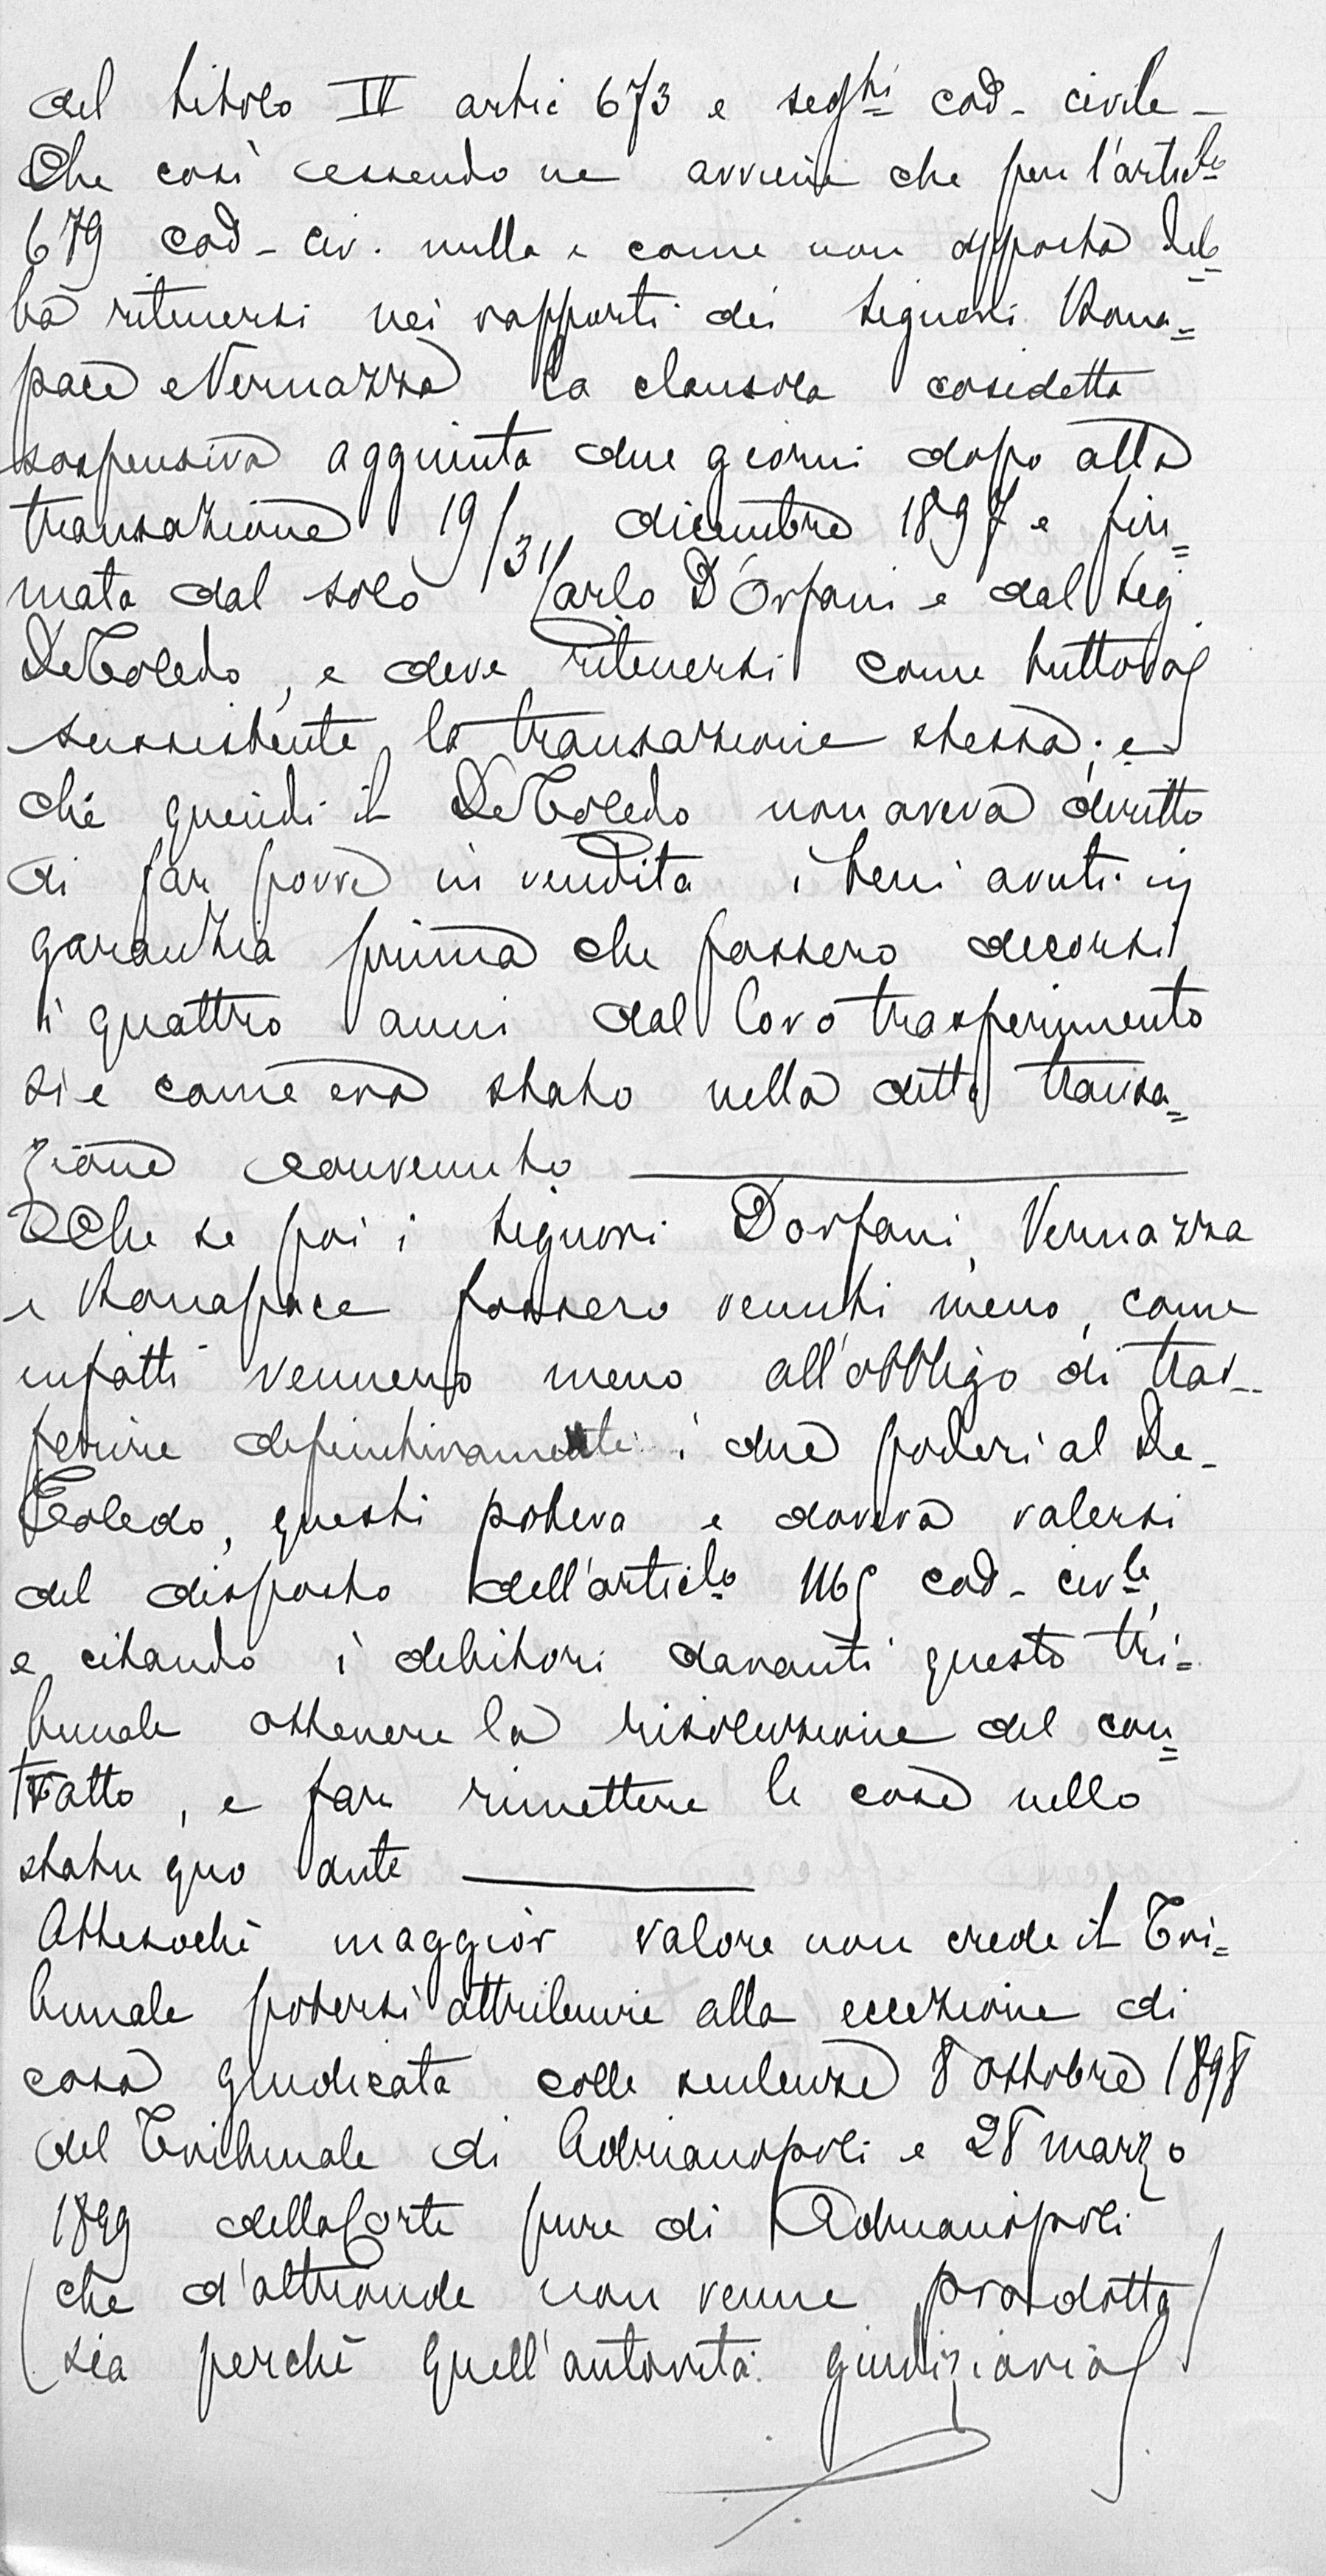 del titolo II artic 673 e segti cod - civile -
Che così essendo ne avviene che per l'articlo
679 cod - civ. nulla e come non apposta deb=
ba ritenersi nei rapporti dei signori Bona=
pace e Vernazza la clausola cosidetta
sospensiva aggiunta due giorni dopo alla
transazione 19/31 dicembre 1897 e fir=
mata dal solo Carlo D'Orfani e dal sig.
DeToledo, e deve ritenersi come tuttora
sussistente la transazione stessa; e
che quindi il DeToledo non aveva diritto
di far porre in vendita i beni avuti in
garanzia prima che fossero decorsi
i quattro anni dal loro trasferimento
sì e come era stato nella detta transa=
zione convenuto
Che se poi i signori Dorfani, Vernazza
e Bonapace fossero venuti meno, come
infatti vennero meno all'obbligo di tras-
ferire definitivamente i due poderi al De-
Toledo, questi poteva e doveva valersi
del disposto dell'articlo 1165 cod - civle,
e citando i debitori davanti questo tri=
bunale ottenere la risoluzione del con=
tratto, e far rimettere le cose nello
statu quo ante
Attesochè maggior valore non crede il Tri=
bunale potersi attribuire alla eccezione di
cosa giudicata colle sentenze 8 ottobre 1898
del Tribunale di Adrianopoli e 28 marzo
1899 della Corte pure di Adrianopoli
(che d'altronde non venne prodotta)
sia perchè quell'autorità giudiziaria